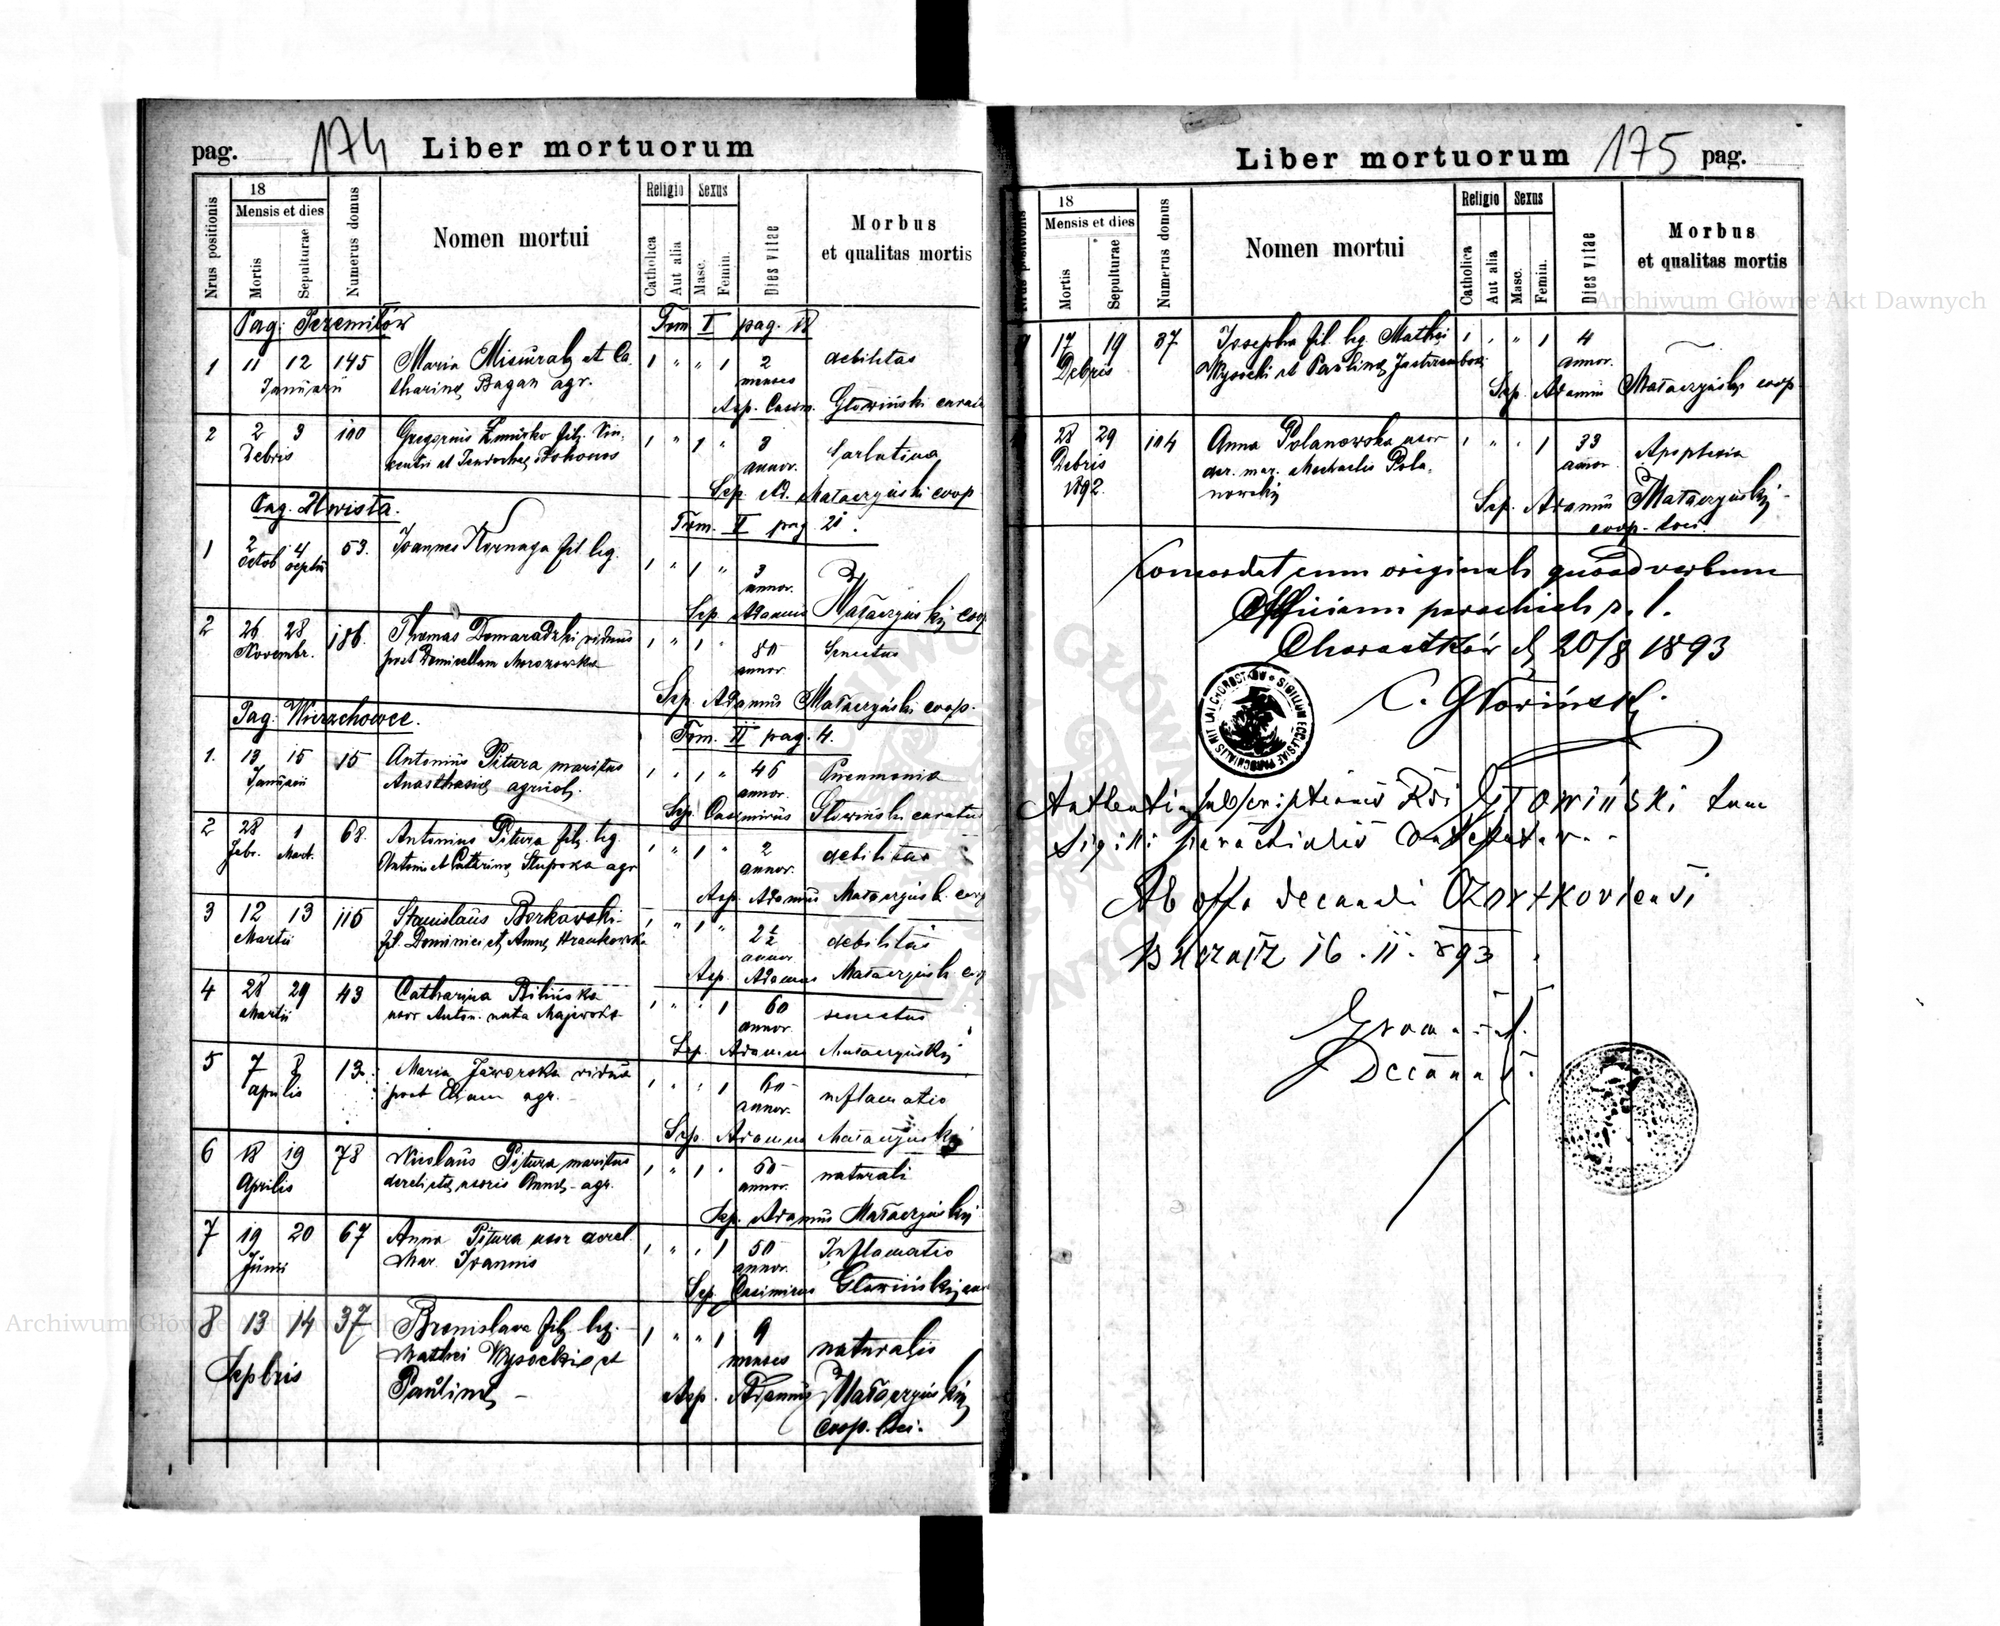 pag. 174 Liber mortuorum
Nrus positionis
18
Mensis et dies
Mortis
Sepulturae
Numerus domus
Nomen mortui
Religio
Catholica
Aut alia
Sexus
Masc.
Femin.
Dies vitae
Morbus
et qualitas mortis
Pag: Peremiłów Tom I pag.
1 11 12 145 Maria Misiurak et Ca- 1 " " 1 2 debilitas
Januarii tharina Bagan agr. menses
Sep. Casim. Głowiński
2 2 3 110 Gregorius Żmurko fil. Vin- 1 " 1 " 3 Scarlatina
Debris annor.
Sep. Ad. Małaczyński coop
Pag. Uwista. Tom. II pag 21.
1 2 4 53. Joannes Kornaga fil. leg. 1 " 1 " 3
annor.
Sep. Adamus Małaczyński coop
2 26 28 186. Thomas Domaradzki viduus 1 " 1 " 80 Senectus
Novembr. post Domicellam Morozowska annor.
Sep. Adamus Małaczyński coop.
Pag. Wierzchowce. Tom. II pag. 4.
1. 13 15 15 Antonius Pitura maritus 1 " 1 " 46 Pneumonia
Januarii Anasthasiae agricol. annor.
Sep. Casimirus Głowiński curatus
2 28 1 68. Antonius Pitura fil. leg. 1 " 1 " 2 debilitas
Febr. Mart. Antoni et Catharinae Stupska agr annor.
Sep. Adamus Małaczyński coop
3 12 13 115 Stanislaus Borkowski 1 " 1 " 2 1/2 debilitas
Martii fil. Dominici et Annae annor
Sep. Adamus Małaczyński coop
4 28 29 43 Catharina Bilińska 1 " " 1 60 senectus
Martii uxor Anton. nata Majewska annor.
Sep. Adamus Małaczyński
5 7 8 13. Maria Jaworska vidua 1 " " 1 60 inflamatio
aprilis post Eliam agr. annor.
Sep. Adamus Małaczyński
6 18 19 78 Nicolaus Pitura maritus 1 " 1 " 50 naturali
Aprilis derelictae uxoris Annae - agr. annor.
Sep. Adamus Małaczyński
7 19 20 67 Anna Pitura uxor derel. 1 " " 1 50 Inflamatio
Junii Mar. Joannis annor.
Sep. Casimirus Głowiński
8 13 14 37 Bronislava fil. leg. 1 " " 1 9 naturalis
Sepbris Mathei Wysocki et menses
Paulinae - Sep. Adamus Małaczyński
coop. loci.
Liber mortuorum 175 pag.
Nrus positionis
18
Mensis et dies
Mortis
Sepulturae
Numerus domus
Nomen mortui
Religio
Catholica
Aut alia
Sexus
Masc.
Femin.
Dies vitae
Morbus
et qualitas mortis
17 19 37 Josepha fil. leg. Mathei 1 " " 1 4
Debris Wysocki et Paulinae annor.
Sep. Adamus Małaczyński coop
28 29 104 Anna Polanowska uxor 1 " " 1 33 Apoplexia
Debris der. mar. Michaelis Pola- annor.
1892. nowski Sep. Adamus Małaczyński
coop. loci.
Concordat cum originali quoad verbum
Officium parochiale r. l.
Chorostków d. 20/8 1893
C. Głowiński
SIGILLUM ECCLESIAE PAROCHIALIS RIT LAT CHOROSTKÓW
subscriptionis Rdi Głowiński
Sigilli parochialis
Ab offo decanali Czortkoviensi
16. II. 893
Decanus
Nakładem Drukarni Ludowej we Lwowie.
Archiwum Główne Akt Dawnych
Archiwum Główne Akt Dawnych